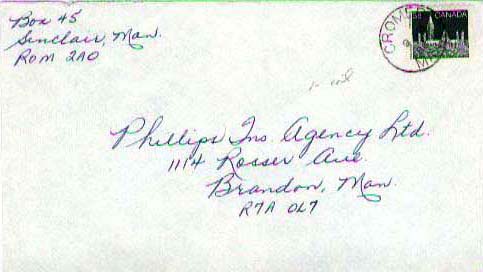 Box 45
Sinclair, Man.
R0M 2A0
CANADA
CROMER
Phillips Ins. Agency Ltd.
1114 Rosser Ave.
Brandon, Man.
R7A 0L7